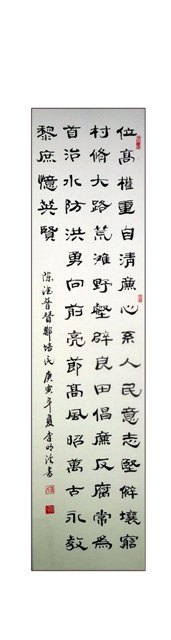 位高權重自清廉心系人民意志堅僻壤窮
村脩大路荒灘野壑辟良田倡廉反腐常為
首治水防洪勇向前亮節高風昭萬古永教
黎庶憶英賢
鄭培民 庚寅年夏李明書